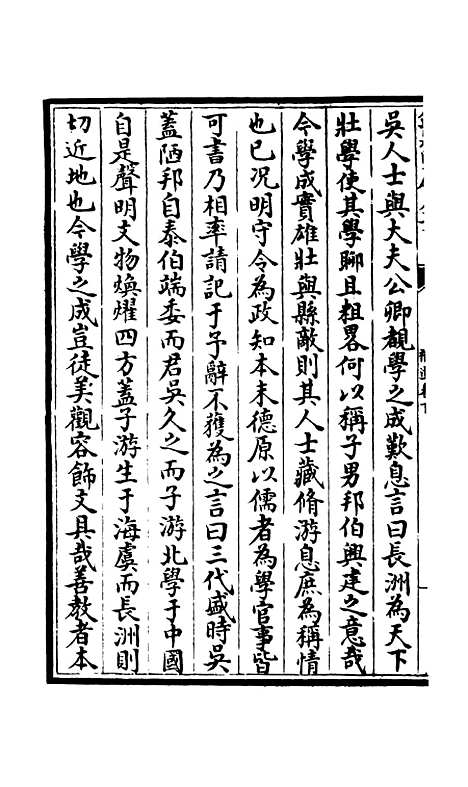 吳人士與大夫公卿覩學之成歎息言曰長洲為天下
壯學使其學聊且粗畧何以稱子男邦伯興建之意哉
今學成實雄壯與縣敵則其人士藏脩游息庶為稱情
也已况明守令為政知本末德原以儒者為學官事皆
可書乃相率請記于予辭不獲為之言曰三代盛時吳
蓋陋邦自泰伯端委而君吳久之而子游北學于中國
自是聲明文物煥燿四方蓋子游生于海虞而長洲則
切近地也今學之成豈徒美觀容飾文具哉善教者本